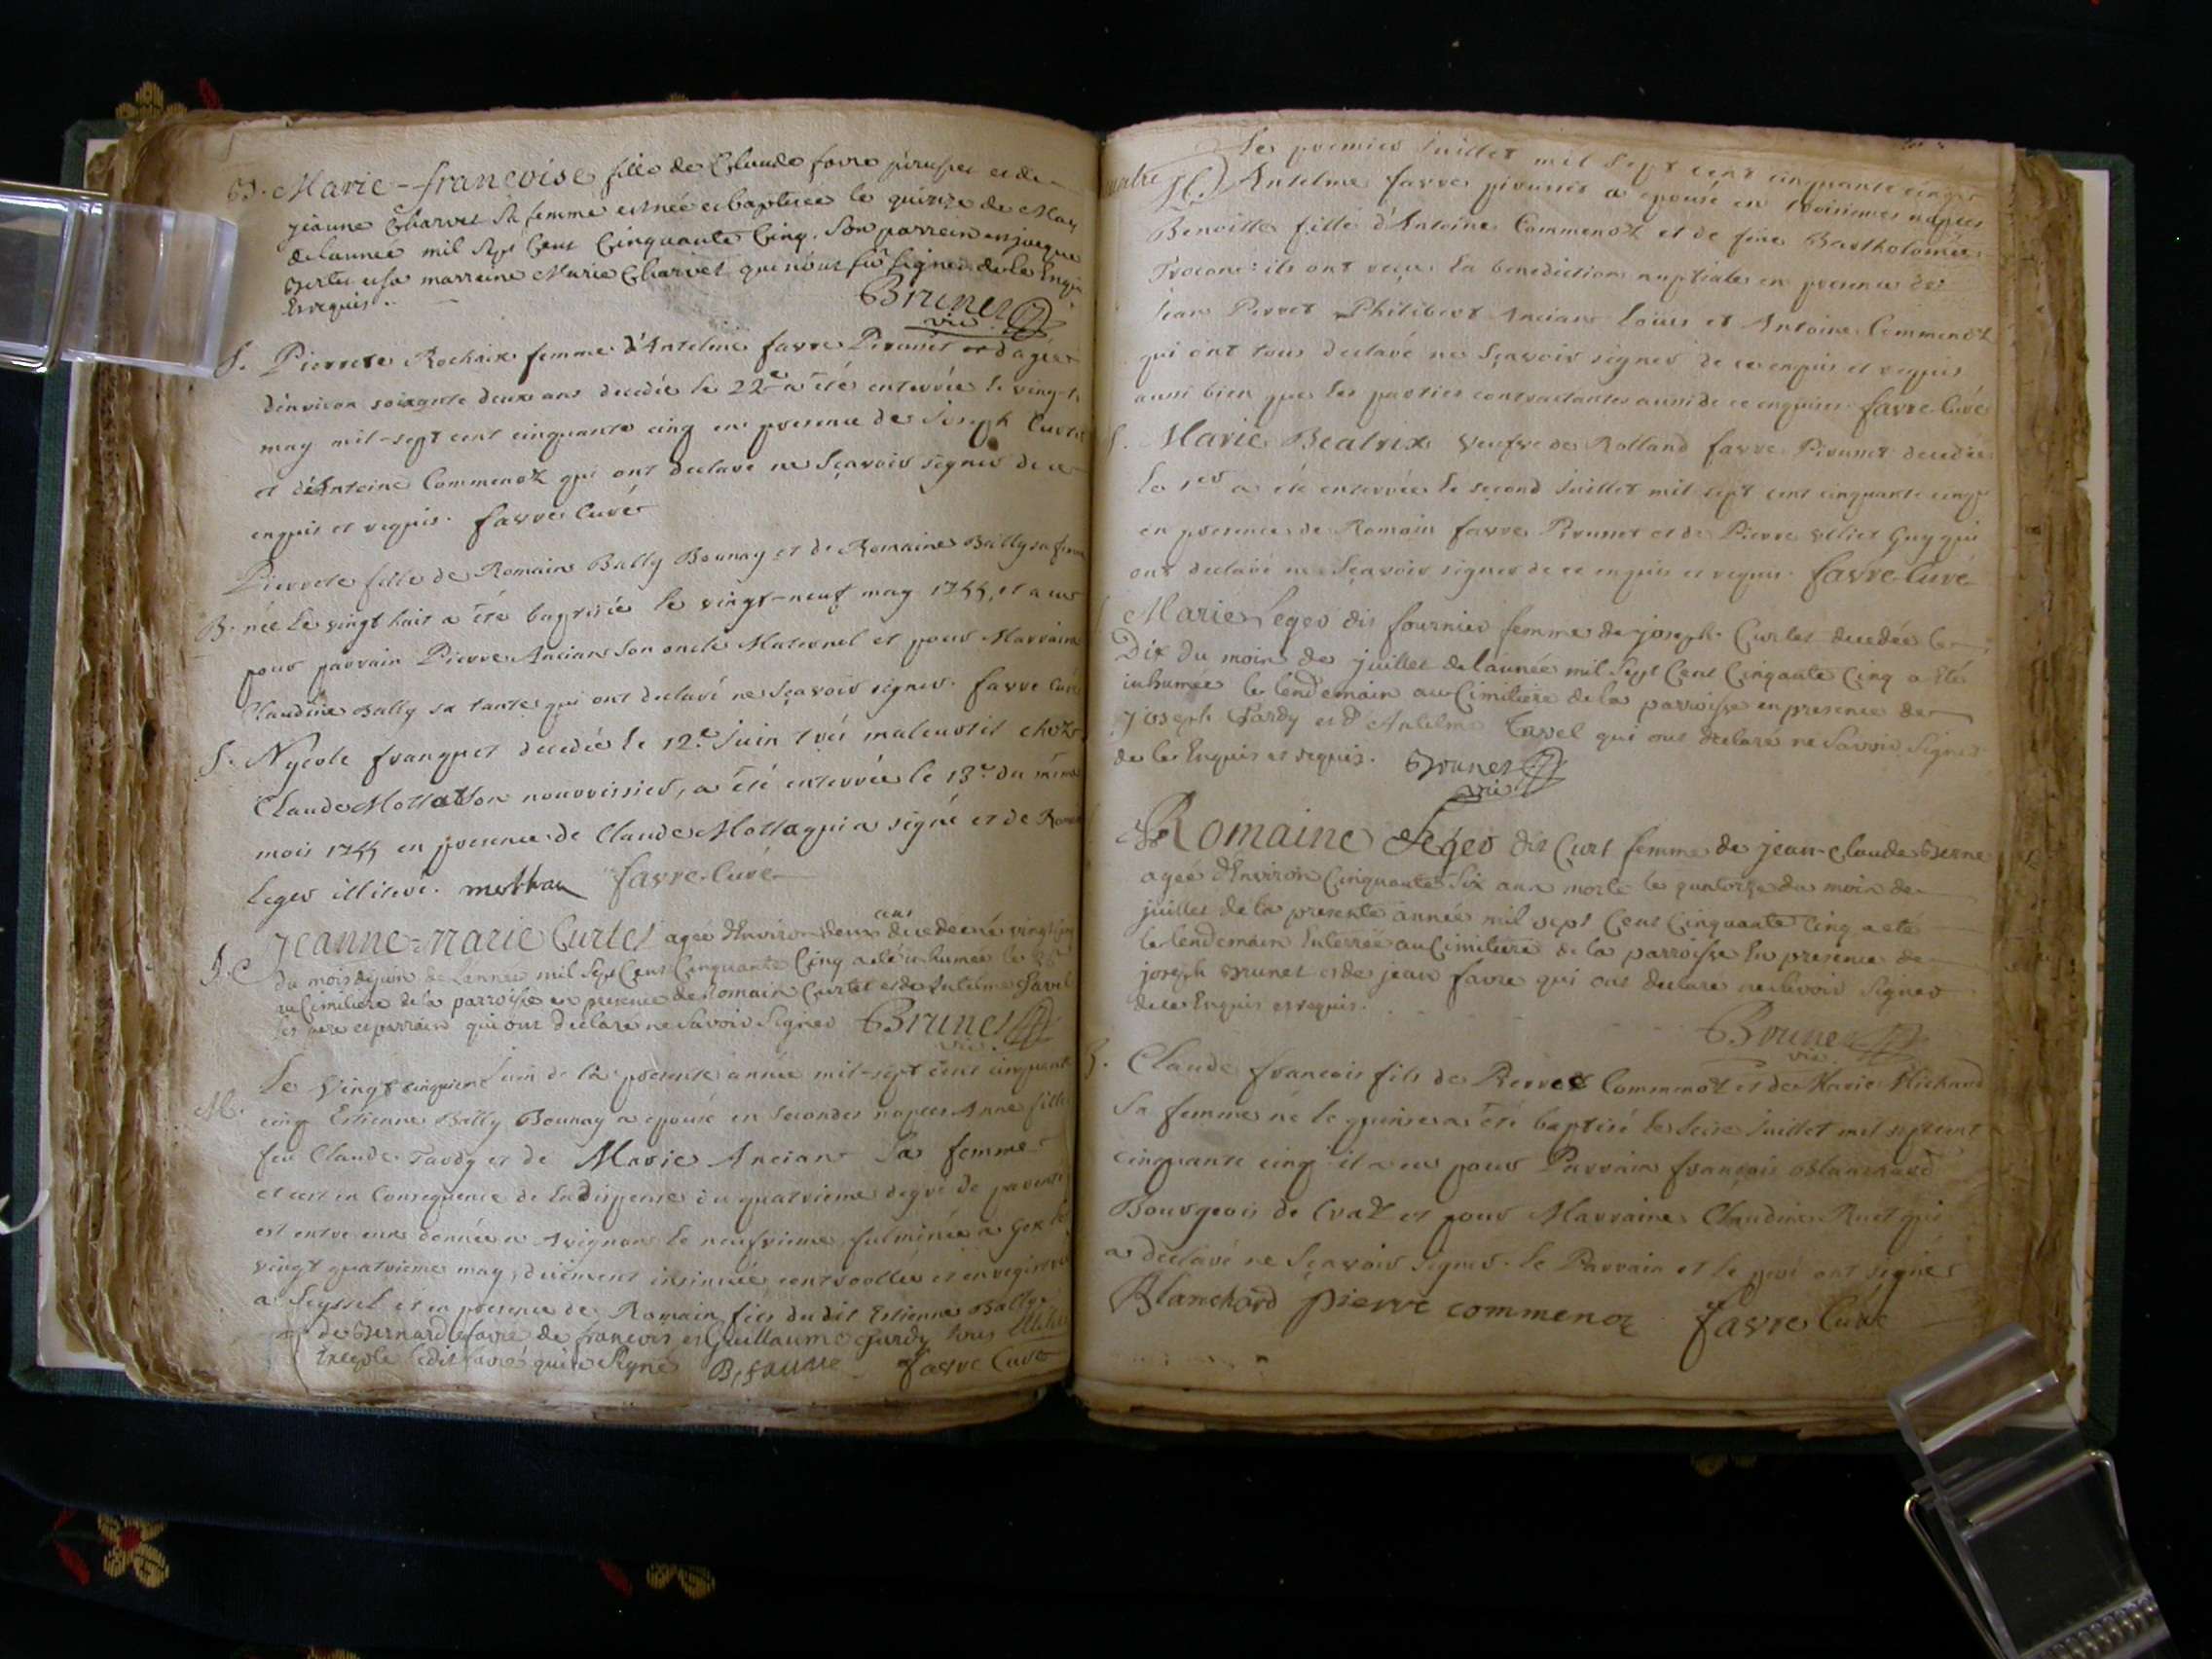 B. Marie-francoise fille de Claude favre pirusset et de
jeanne Charvet sa femme est née et baptisee le quinze de May
de lannée mil sept Cent Cinquante Cinq. son parrein est jacque
et sa marreine Marie Charvet qui n'ont su signer de le Enquis
Et requis.
Brunet
vic
S. Pierrete Rochaix femme d'Antelme favre Pirusset agée
d'environ soixante deux ans decedée le 22e a été enterrée le vingt
may mil-sept cent cinquante cinq en presence de Joseph Curtet
et d'Antoine Commenoz qui ont declaré ne sçavoir signer de ce
enquis et requis. favre Curé
Pierrete fille de Romain Bally Bounay et de Romaine Bally sa femme
B. née le vingt huit a été baptisée le vingt-neuf may 1755, et a eu
pour parrain Pierre Ancian son oncle Maternel et pour Marraine
Claudine Bally sa tante qui ont declaré ne sçavoir signer. favre Curé
S. Nycole franquet decedée le 12e Juin chez
Claude Mottat son nourrissier, a été enterrée le 13e du même
mois 1755 en presence de Claude Motta qui a signé et de Romain
Leger illiteré. mottaz favre Curé
S. Jeanne-Marie Curtet agée d'Environ deux ans decedée vingt
du mois de juin de Lannée mil sept Cent Cinquante Cinq a été inhumée le
au Cimitiere de la parroisse en presence de Romain Curtet et de Antelme
ses pere et parrain qui ont declaré ne savoir signer Brunet
vic.
Le vingt cinquieme Juin de la presente année mil-sept cent cinquante
M. cinq Estienne Bally Bounay a epousé en secondes nopces Anne fille
feu Claude Tardy et de Marie Ancian sa femme
et cest en Consequence de la dispense du quatrieme degré de parenté
est entre eux donnée a Avignon le neufvieme, fulminée a Gex le
vingt quatrieme may, duëment insinuée controollée et enregistrée
a Seyssel et en presence de Romain fils dudit Estienne Bally
de Bernard favre de francois et Guillaume Tardy tous illiterés
Excepte ledit favre qui a signé B. favre favre Curé
Le premier Juillet mil sept cent cinquante cinq
M. Antelme favre pirusset a epousé en troisiemes nopces
Benoitte fille d'Antoine Commenoz et de feue Bartholomée
ils ont reçu la benediction nuptiale en presence de
Jean Perret Philibert Ancian Louis et Antoine Commenoz
qui ont tous declaré ne sçavoir signer de ce enquis et requis
aussi bien que les parties contractantes aussi de ce enquises favre Curé
S. Marie Beatrix veufve de Rolland favre Pirusset decedée
le 1er a été enterrée le second Juillet mil sept cent cinquante cinq
en presence de Romain favre Pirusset et de Pierre Guy qui
ont declaré ne sçavoir signer de ce enquis et requis. favre Curé
Marie Leger dit fournier femme de joseph Curtet decedée le
Dix du mois de juillet de lannée mil sept Cent Cinqante Cinq a Eté
inhumée le lendemain au Cimitiere de la parroisse en presence de
joseph Tardy et d'Antelme qui ont declaré ne savoir signer
de le Enquis et requis. Brunet
vic
Romaine Leger dit Curt femme de jean-Claude Berne
agée d'Environ Cinquante six ans morte le quatorze du mois de
juillet de la presente année mil sept Cent Cinquante Cinq a eté
le lendemain Enterrée au Cimitiere de la parroisse En presence de
joseph Brunet et de jean favre qui ont declare ne savoir signer
de ce Enquis et requis.
Brunet
vic.
B. Claude francois fils de Pierre Commenoz et de Marie Michaud
sa femme né le quinse a été baptisé le seise Juillet mil sept cent
cinquante cinq il a eu pour Parrain françois Blanchard
Bourgeois de Craz et pour Marraine Claudine Ruet qui
a declaré ne sçavoir signer. le Parrain et le pere ont signés
Blanchard pierre commenoz favre Curé